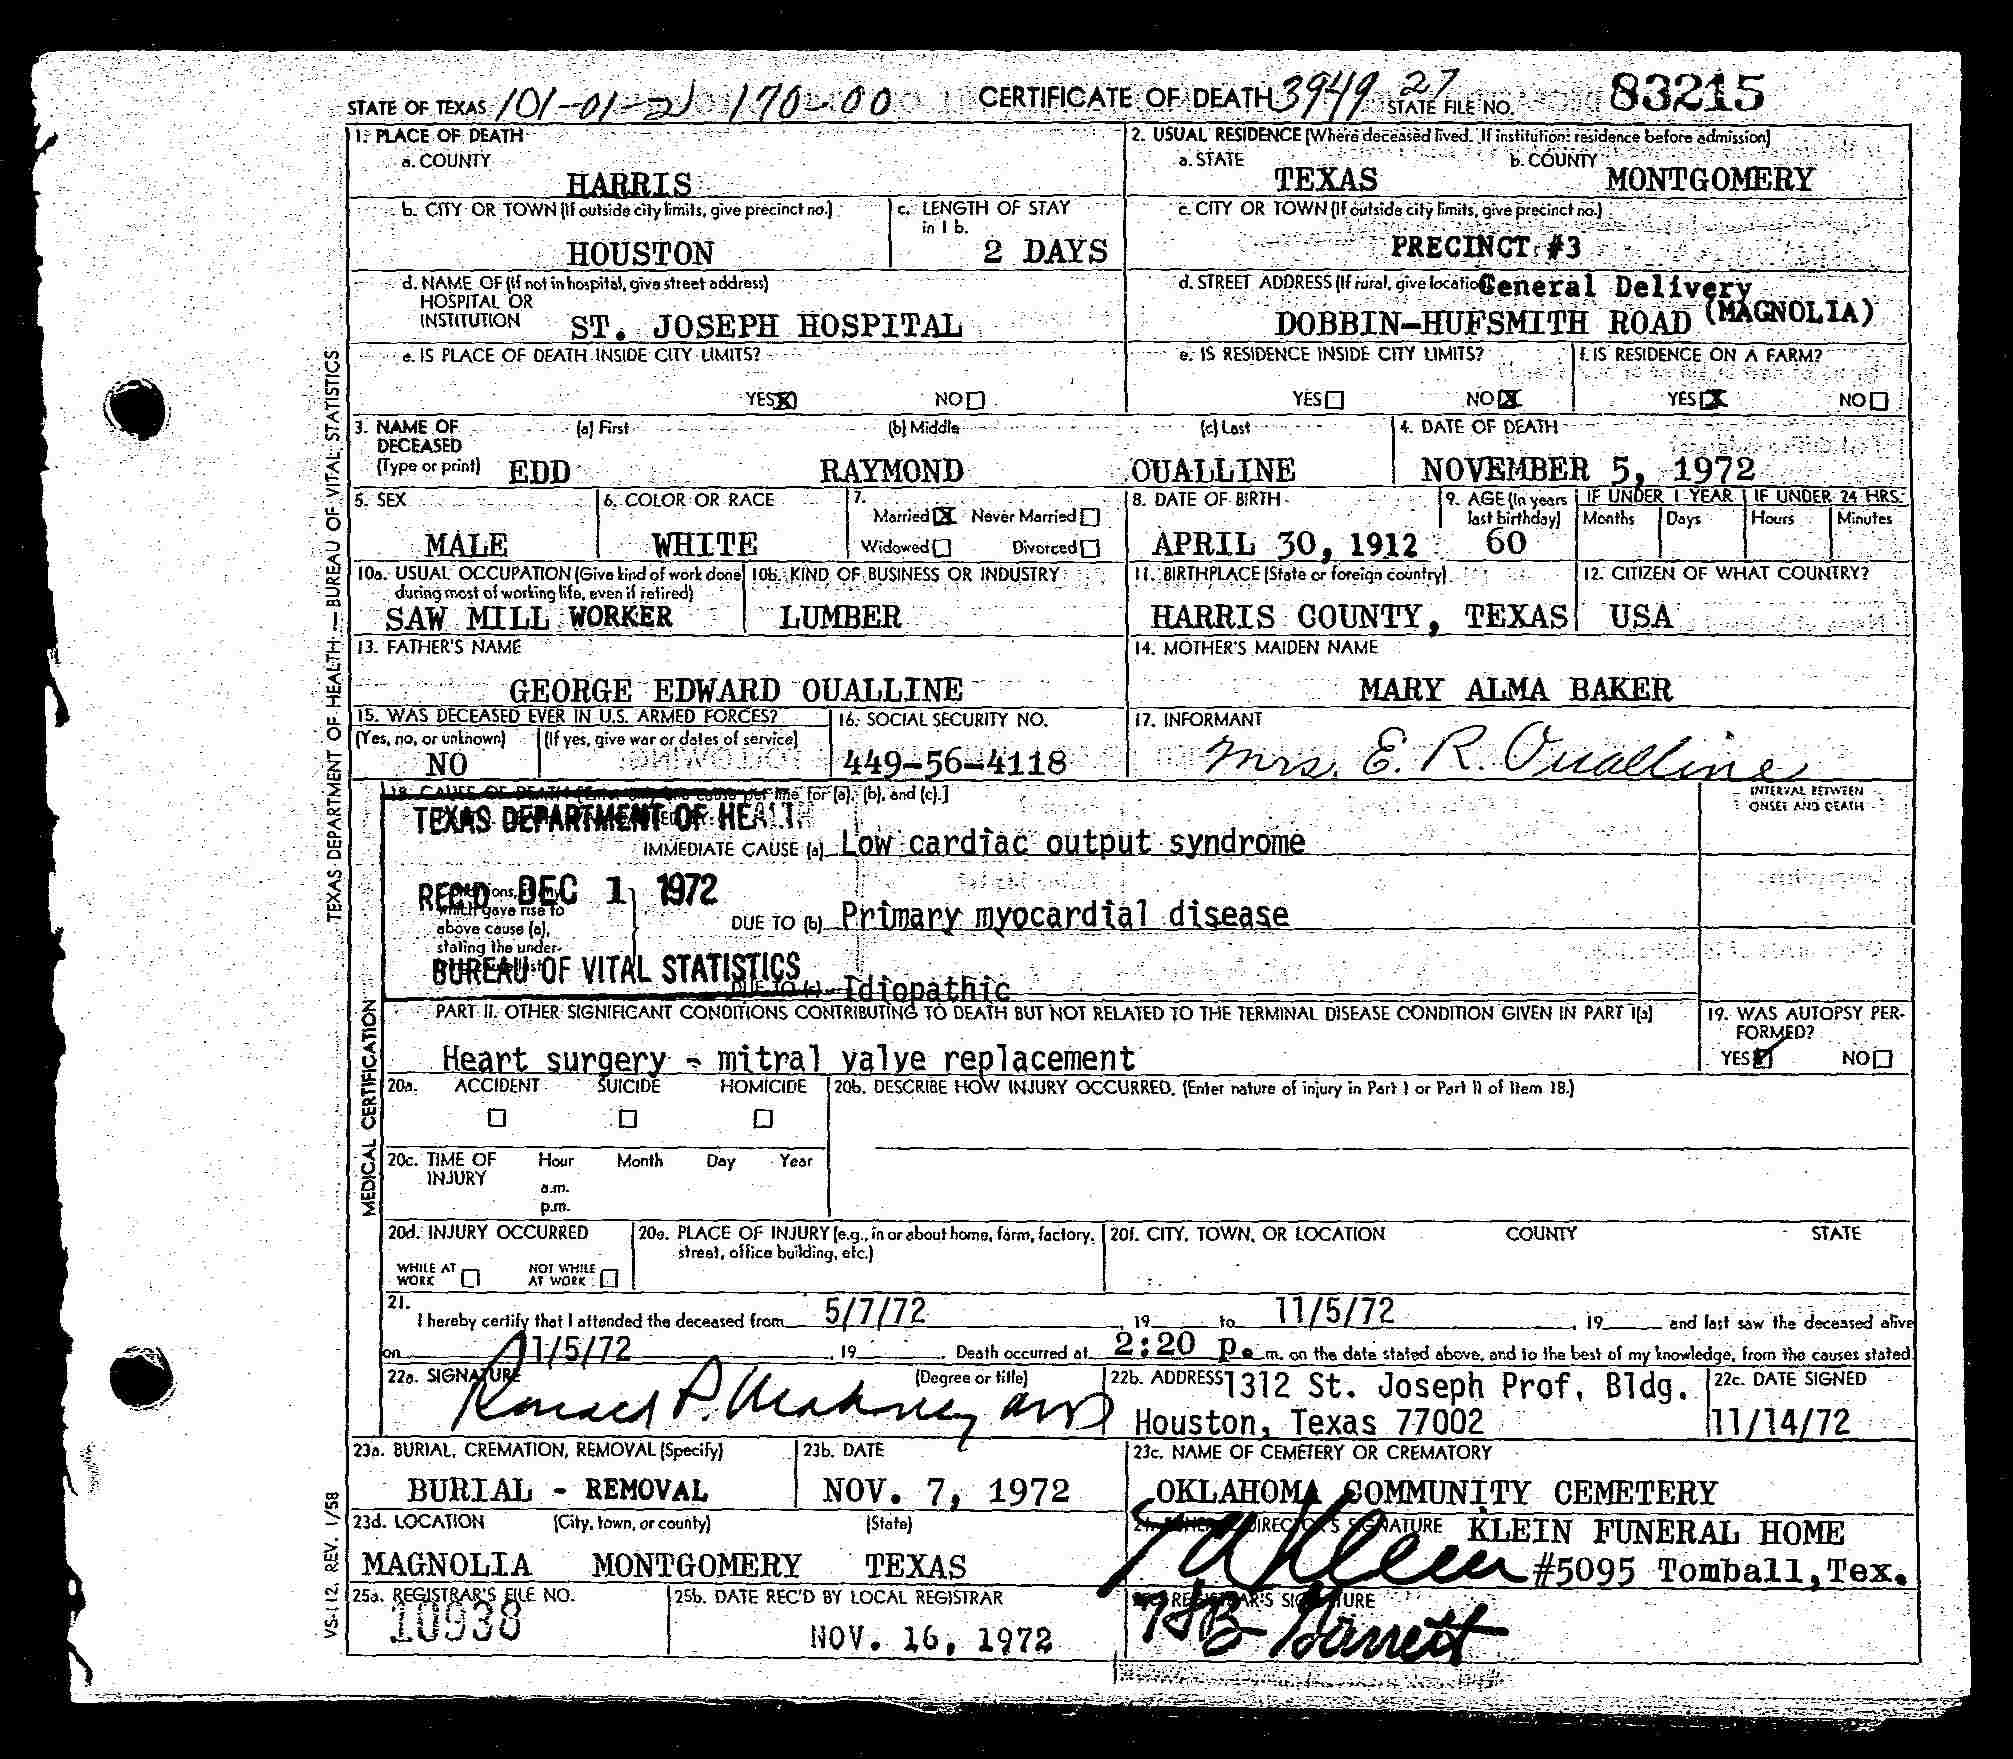 STATE OF TEXAS 101-01-2 170-00 CERTIFICATE OF DEATH 3949 27 STATE FILE NO. 83215
1. PLACE OF DEATH
a. COUNTY
HARRIS
2. USUAL RESIDENCE (Where deceased lived. If institution: residence before admission)
a. STATE b. COUNTY
TEXAS MONTGOMERY
b. CITY OR TOWN (If outside city limits, give precinct no.)
HOUSTON
c. LENGTH OF STAY
in 1 b.
2 DAYS
c. CITY OR TOWN (If outside city limits, give precinct no.)
PRECINCT #3
d. NAME OF (If not in hospital, give street address)
HOSPITAL OR
INSTITUTION ST. JOSEPH HOSPITAL
d. STREET ADDRESS (If rural, give location General Delivery
DOBBIN-HUFSMITH ROAD (MAGNOLIA)
e. IS PLACE OF DEATH INSIDE CITY LIMITS?
YES X NO
e. IS RESIDENCE INSIDE CITY LIMITS?
YES NO X
f. IS RESIDENCE ON A FARM?
YES X NO
3. NAME OF DECEASED (Type or print)
(a) First (b) Middle (c) Last
EDD RAYMOND OUALLINE
4. DATE OF DEATH
NOVEMBER 5, 1972
5. SEX
MALE
6. COLOR OR RACE
WHITE
7.
Married X Never Married
Widowed Divorced
8. DATE OF BIRTH
APRIL 30, 1912
9. AGE (In years last birthday)
60
IF UNDER 1 YEAR IF UNDER 24 HRS.
Months Days Hours Minutes
10a. USUAL OCCUPATION (Give kind of work done
during most of working life, even if retired)
SAW MILL WORKER
10b. KIND OF BUSINESS OR INDUSTRY
LUMBER
11. BIRTHPLACE (State or foreign country)
HARRIS COUNTY, TEXAS
12. CITIZEN OF WHAT COUNTRY?
USA
13. FATHER'S NAME
GEORGE EDWARD OUALLINE
14. MOTHER'S MAIDEN NAME
MARY ALMA BAKER
15. WAS DECEASED EVER IN U.S. ARMED FORCES?
(Yes, no, or unknown) (If yes, give war or dates of service)
NO
16. SOCIAL SECURITY NO.
449-56-4118
17. INFORMANT
Mrs. E. R. Oualline
18. CAUSE OF DEATH [Enter only one cause per line for (a), (b), and (c).]
INTERVAL BETWEEN
ONSET AND DEATH
TEXAS DEPARTMENT OF HEALTH
IMMEDIATE CAUSE (a) Low cardiac output syndrome
REC'D DEC 1 1972
which gave rise to
above cause (a),
stating the under-
DUE TO (b) Primary myocardial disease
BUREAU OF VITAL STATISTICS
DUE TO (c) Idiopathic
PART II. OTHER SIGNIFICANT CONDITIONS CONTRIBUTING TO DEATH BUT NOT RELATED TO THE TERMINAL DISEASE CONDITION GIVEN IN PART I(a)
Heart surgery - mitral valve replacement
19. WAS AUTOPSY PER-
FORMED?
YES NO
20a. ACCIDENT SUICIDE HOMICIDE
20b. DESCRIBE HOW INJURY OCCURRED. (Enter nature of injury in Part I or Part II of Item 18.)
20c. TIME OF INJURY Hour Month Day Year
a.m.
p.m.
20d. INJURY OCCURRED
WHILE AT WORK NOT WHILE AT WORK
20e. PLACE OF INJURY (e.g., in or about home, farm, factory,
street, office building, etc.)
20f. CITY, TOWN, OR LOCATION COUNTY STATE
21.
I hereby certify that I attended the deceased from 5/7/72, 19 to 11/5/72, 19 and last saw the deceased alive
on 11/5/72, 19. Death occurred at 2:20 p. m. on the date stated above, and to the best of my knowledge, from the causes stated.
22a. SIGNATURE (Degree or title)
22b. ADDRESS 1312 St. Joseph Prof. Bldg.
Houston, Texas 77002
22c. DATE SIGNED
11/14/72
23a. BURIAL, CREMATION, REMOVAL (Specify)
BURIAL - REMOVAL
23b. DATE
NOV. 7, 1972
23c. NAME OF CEMETERY OR CREMATORY
OKLAHOMA COMMUNITY CEMETERY
23d. LOCATION (City, town, or county) (State)
MAGNOLIA MONTGOMERY TEXAS
24. FUNERAL DIRECTOR'S SIGNATURE KLEIN FUNERAL HOME
Klein #5095 Tomball, Tex.
25a. REGISTRAR'S FILE NO.
10938
25b. DATE REC'D BY LOCAL REGISTRAR
NOV. 16, 1972
25c. REGISTRAR'S SIGNATURE
TEXAS DEPARTMENT OF HEALTH—BUREAU OF VITAL STATISTICS
MEDICAL CERTIFICATION
VS-112, REV. 1/58